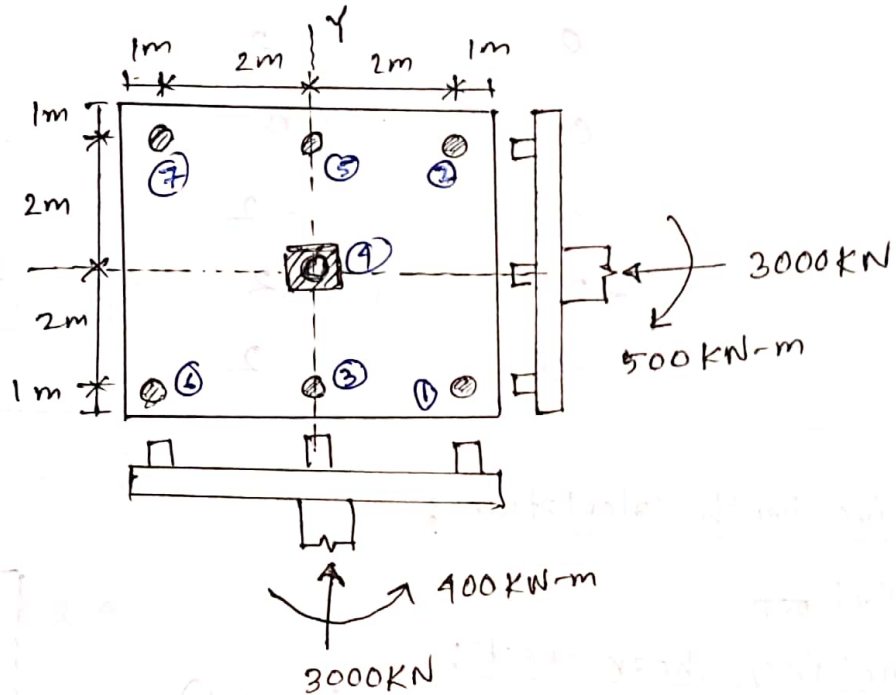 Y
1m
2m
2m
1m
1m
2m
2m
1m
7
5
2
4
6
3
1
3000KN
500KN-m
400KN-m
3000KN